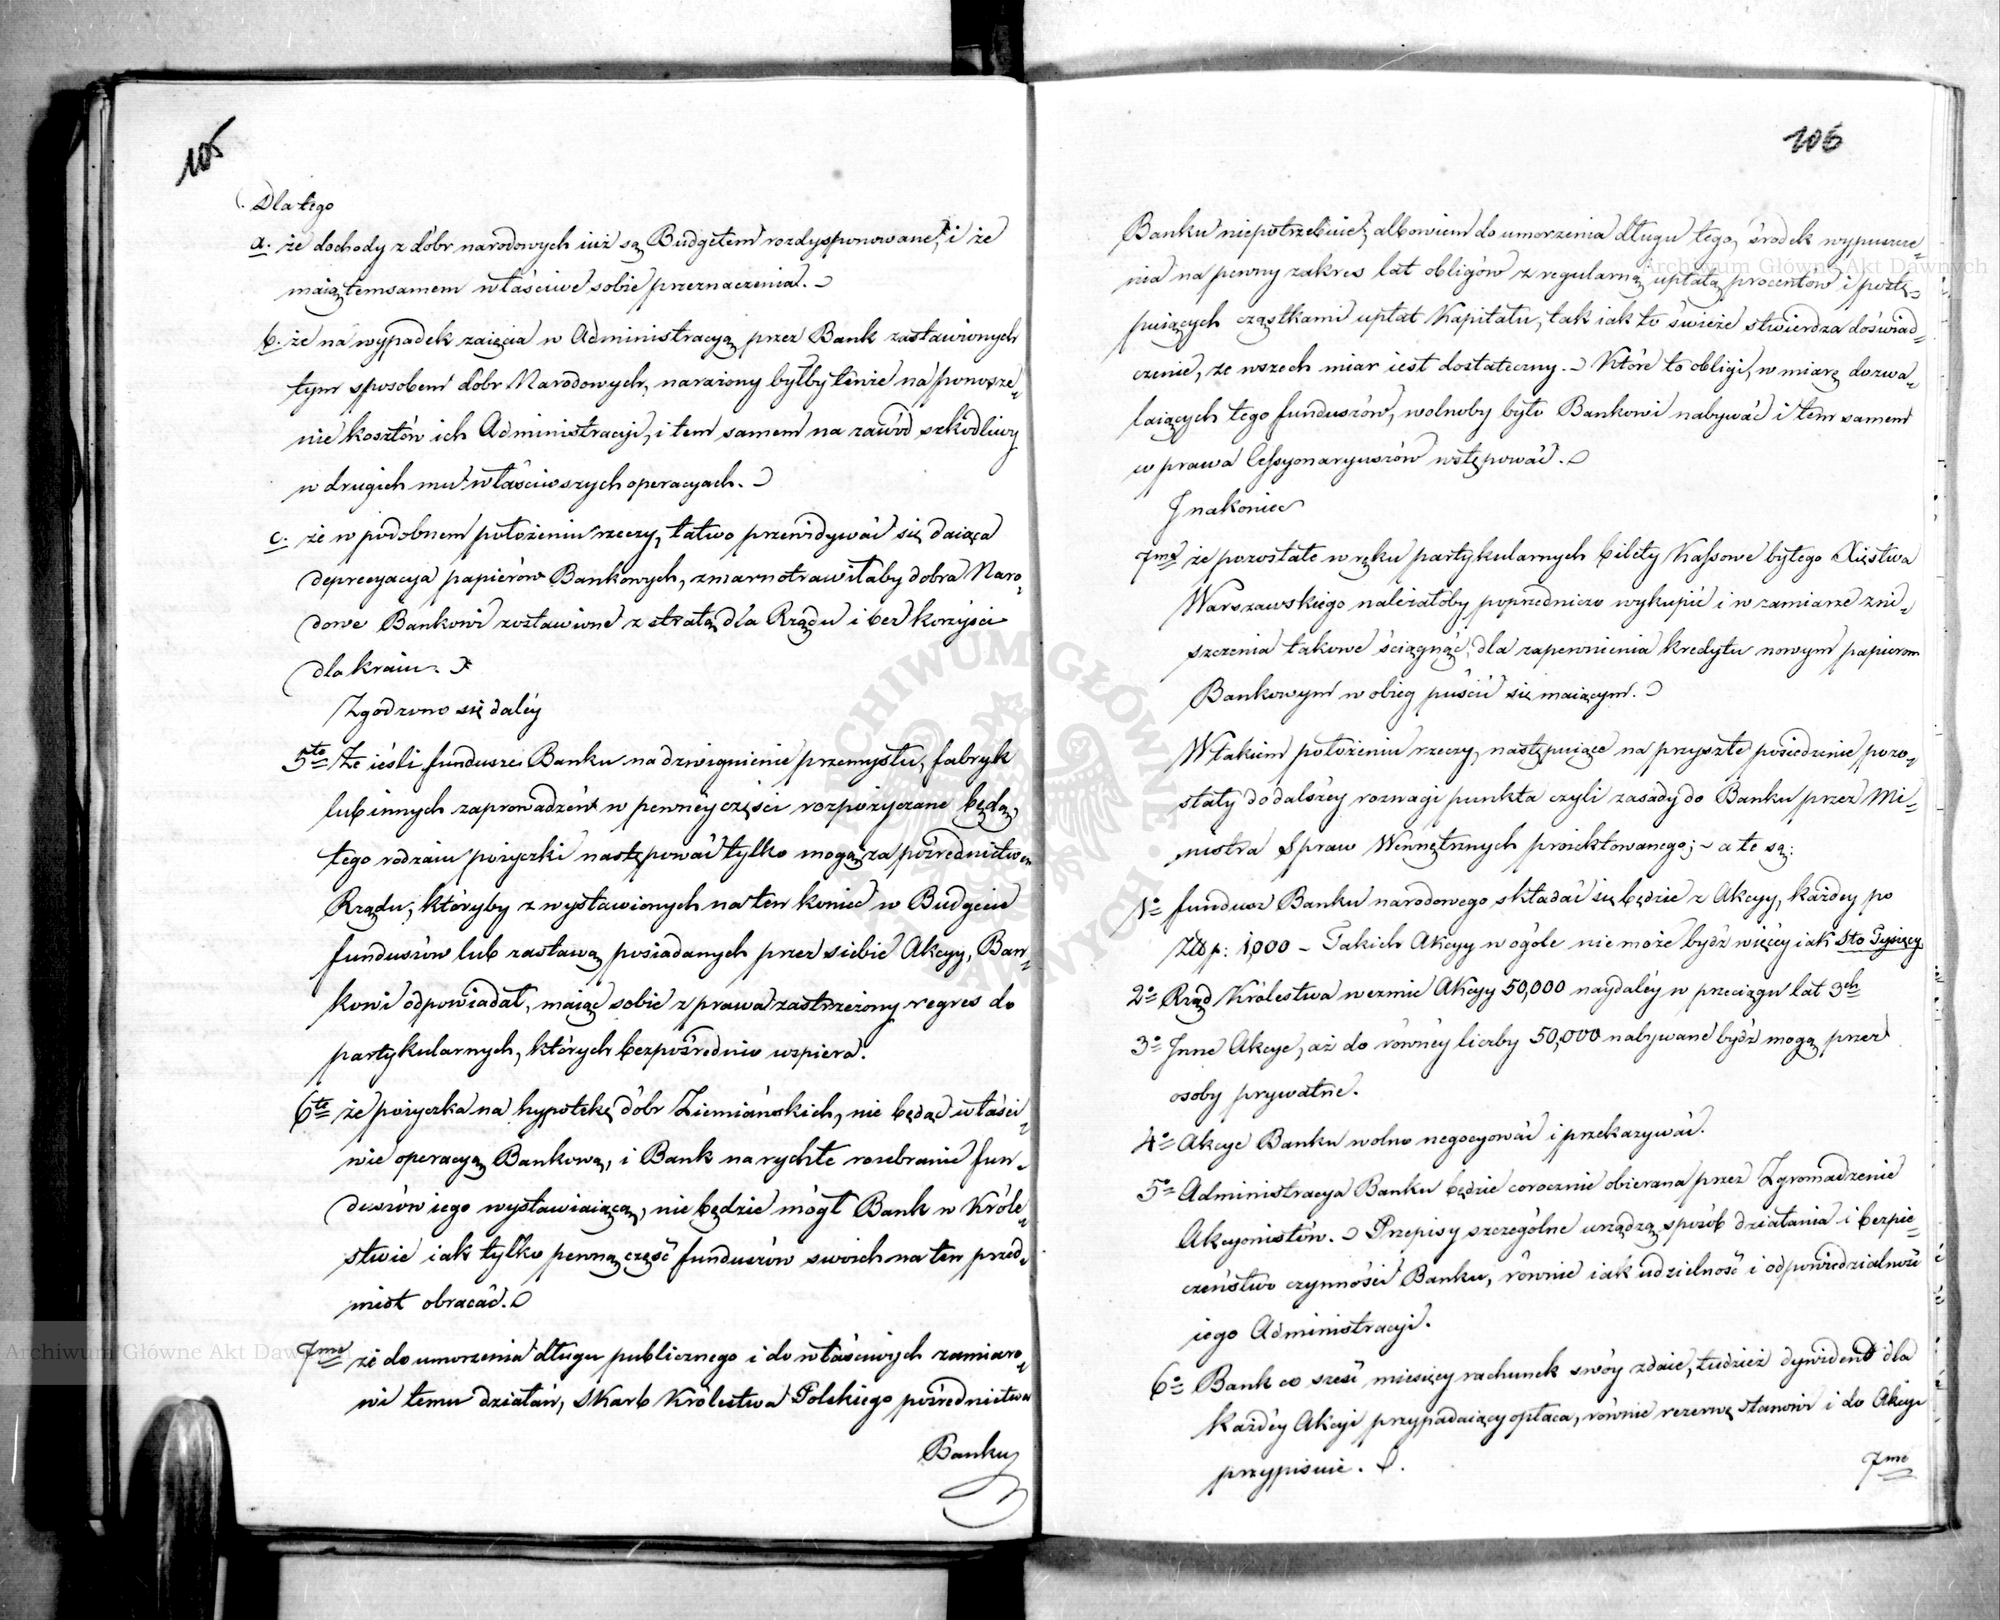 106
Dla tego
a. że dochody z dobr narodowych iuż są Budgetem rozdysponowane, i że
maią temsamem właściwe sobie przeznaczenia.
b. że na wypadek zaięcia w Administracyą przez Bank zastawionych
tym sposobem dobr Narodowych, narażony byłby tenże na ponosze=
nie kosztów ich Administracyi, i tem samem na zawód szkodliwy
w drugich mu właściwszych operacyach.
c. że w podobnem położeniu rzeczy, łatwo przewidywać się daiąca
deprecyacya papierów Bankowych, zmarnotrawiłaby dobra Naro=
dowe Bankowi zostawione z stratą dla Rządu i bez korzyści
dla kraiu.
Zgodzono się daléy
5te Że iéśli fundusze Banku na dzwignienie przemysłu, fabryk
lub innych zaprowadzeń w pewnéy części rozpożyczane będą,
tego rodzaiu pożyczki następować tylko mogą za pośrednictwem
Rządu, któryby z wystawionych na ten koniec w Budgecie
funduszów lub zastawą posiadanych przez siebie Akcyy, Ban=
kowi odpowiadał, maiąc sobie z prawa zastrzeżony regres do
partykularnych, których bezpośrednio wspiera.
6te że pożyczka na hypotekę dóbr Ziemiańskich, nie będąc właści=
wie operacyą Bankową, i Bank na rychłe rozebranie fun=
duszów iego wystawiaiącą, nie będzie mógł Bank w Króle=
stwie iak tylko pewną część funduszów swoich na ten przed=
miot obracać.
7me że do umorzenia długu publicznego i do właściwych zamiaro=
wi temu działań, Skarb Królestwa Polskiego pośrednictwa
Banku
106
Banku niepotrzebuie, albowiem do umorzenia długu tego, środek wypuszcze=
nia na pewny zakres lat obligów z regularną upłatą procentów i postę=
puiących cząstkami upłat Kapitału, tak iak to świeże stwierdza doświad=
czenie, ze wszech miar iest dostateczny. Które to obligi, w miarę dozwa=
laiących tego funduszów, wolnoby było Bankowi nabywać i tem samem
w prawa Cessyonaryuszów wstępować.
Jnakoniec
7me że pozostałe w ręku partykularnych bilety Kassowe byłego Xięstwa
Warszawskiego należałoby poprzedniczo wykupić i w zamiarze zni=
szczenia takowe ściągnąć, dla zapewnienia kredytu nowym papierom
Bankowym w obieg puścić się maiącym.
W takiem położeniu rzeczy, następuiące na przyszłe posiedzenie pozo=
stały do dalszey rozwagi punkta czyli zasady do Banku przez Mi=
nistra Spraw Wewnętrznych proiektowanego; a te są:
1o fundusz Banku narodowego składać się będzie z Akcyy, każdey po
Złp: 1,000 – Takich Akcyy w ogóle nie może bydź więcey iak Sto Tysięcy
2o Rząd Królestwa wezmie Akcyy 50,000 naydaléy w przeciągu lat 3ch
3o Jnne Akcye, aż do równéy liczby 50,000 nabywane bydź mogą przez
osoby prywatne.
4o Akcye Banku wolno negocyować i przekazywać.
5o Administracya Banku będzie corocznie obierana przez Zgromadzenie
Akcyonistów. Przepisy szczególne urządzą sposób działania i bezpie=
czeństwo czynności Banku, równie iak udzielność i odpowiedzialność
iego Administracyi.
6o Bank co sześć miesięcy rachunek swóy zdaie, tudzież dywidend dla
każdéy Akcyi przypadaiący opłaca, równie rezerwę stanowi i do Akcyi
przypisuie.
7me
Archiwum Główne Akt Dawnych
Archiwum Główne Akt Dawnych
ARCHIWUM GŁÓWNE AKT DAWNYCH